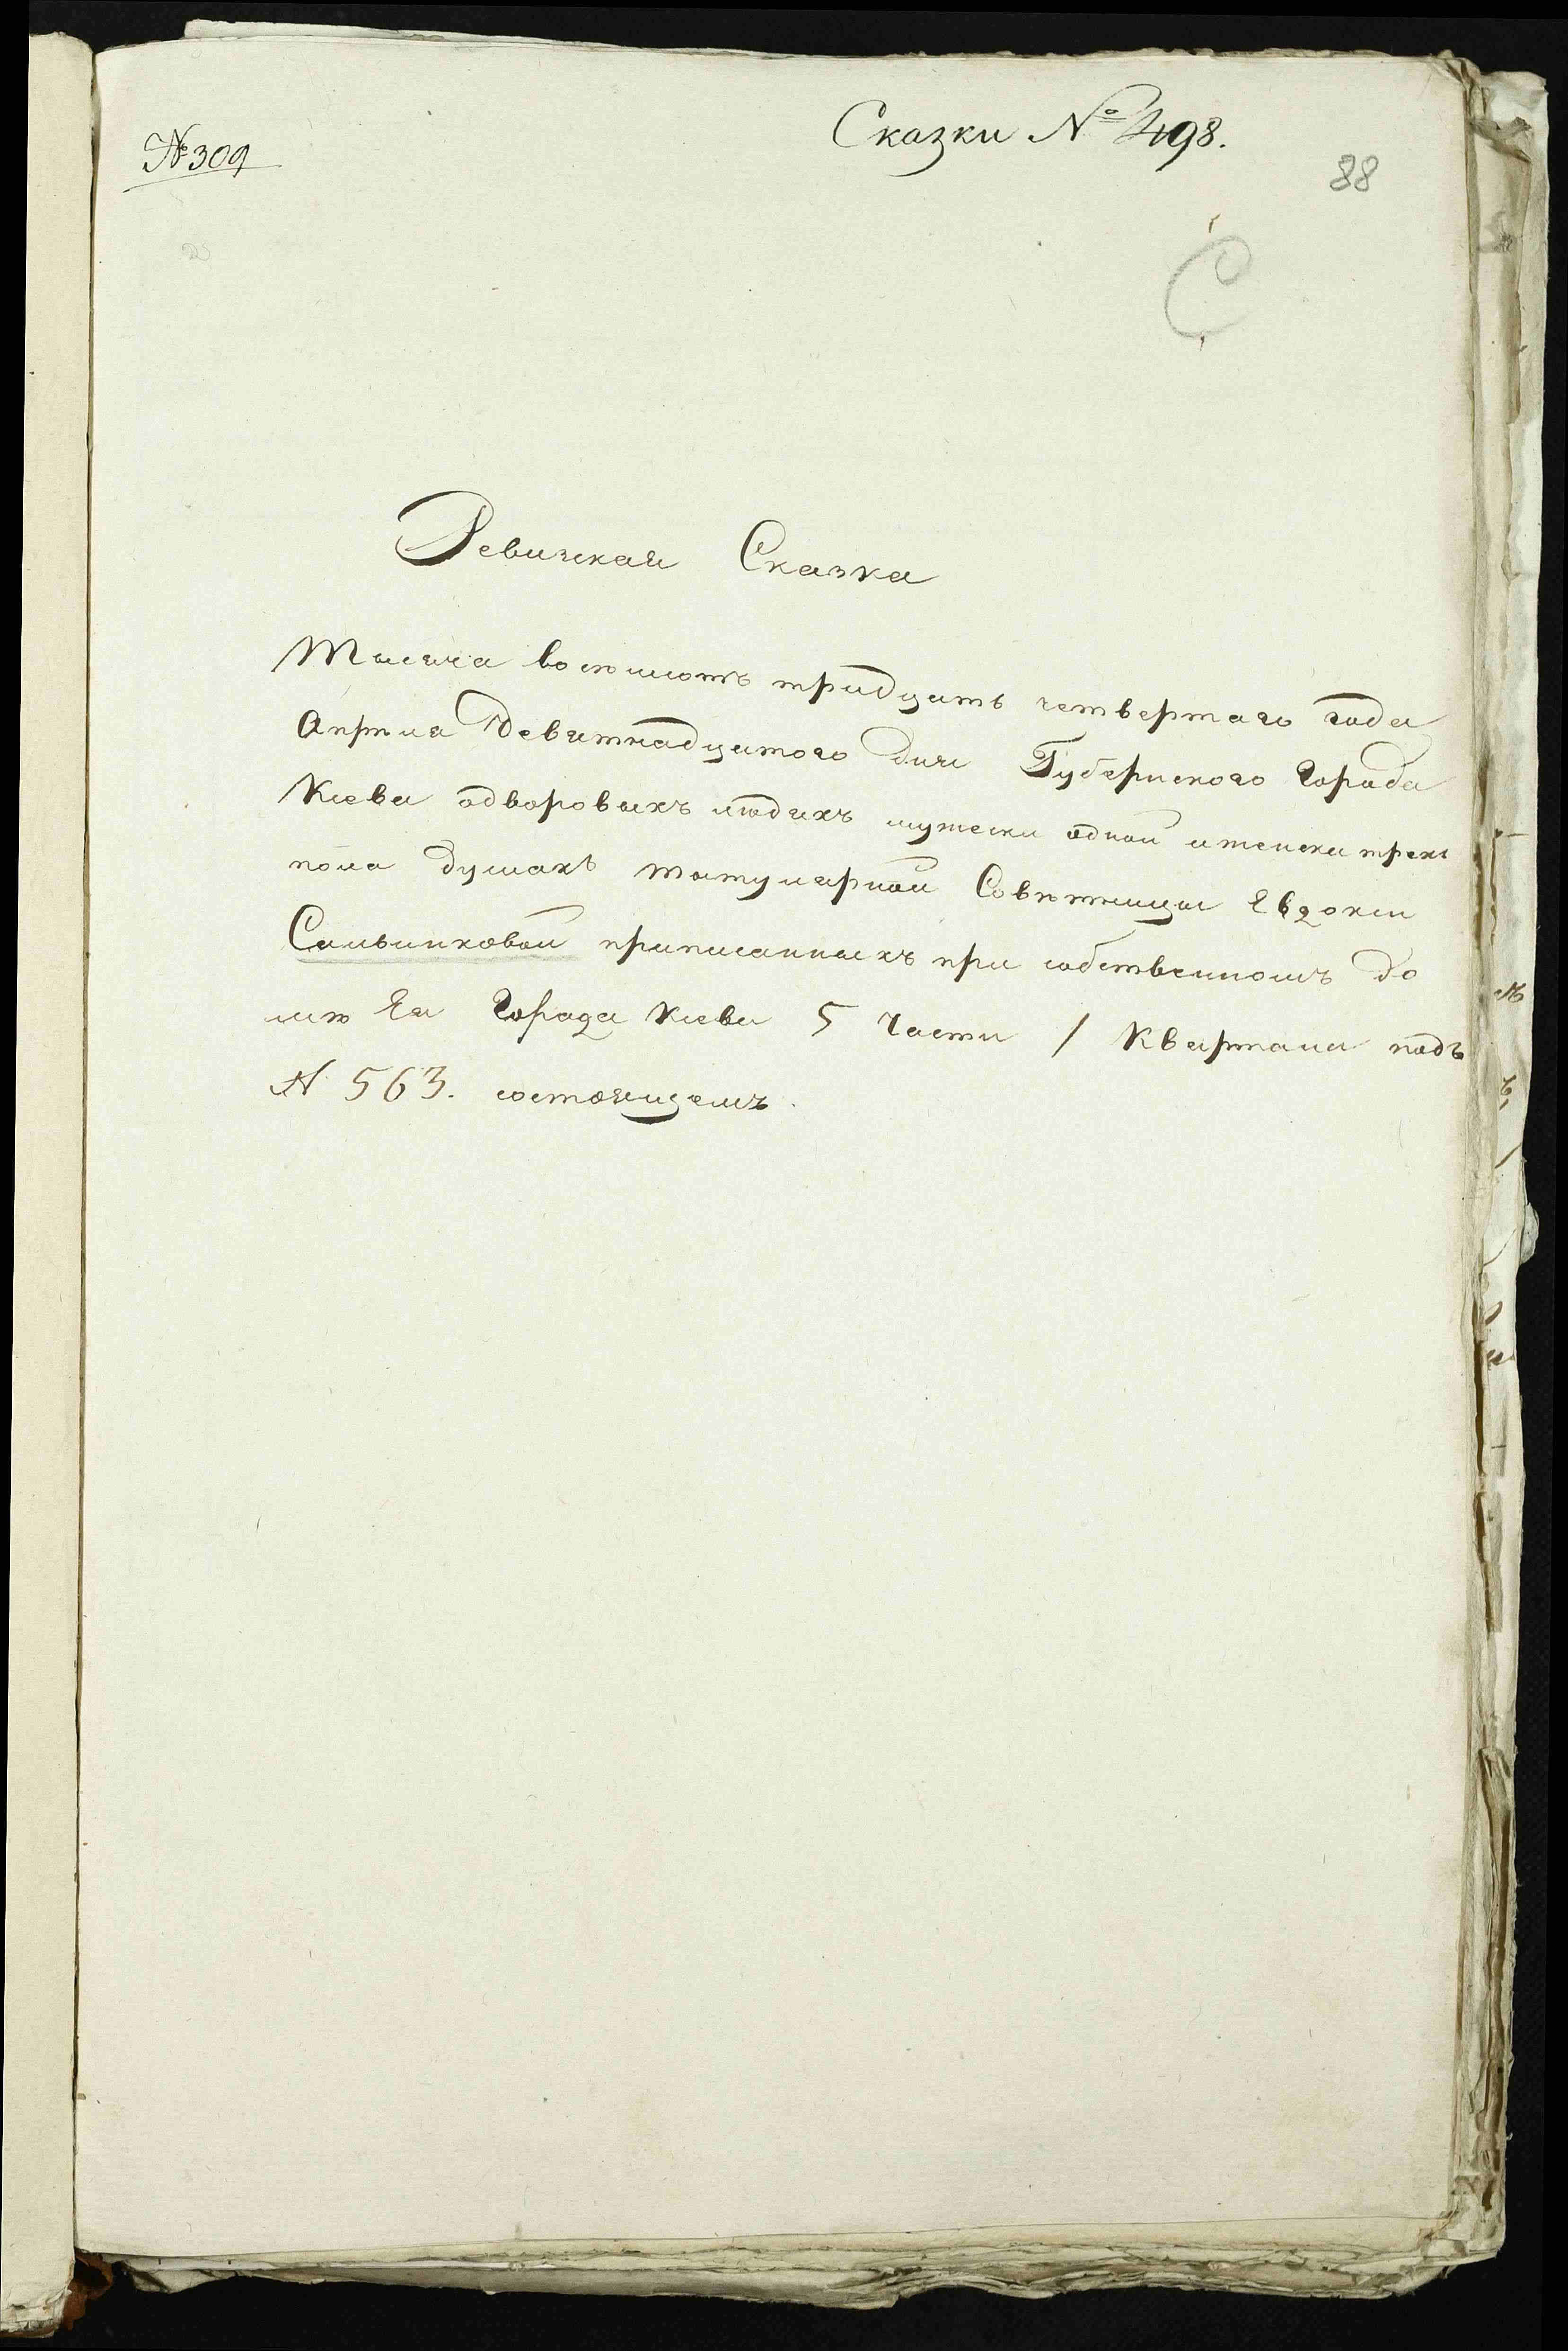 № 309
Сказки № 498.
88
С
Ревизкая Сказка
Тысяча восемсотъ тридцать четвертаго года
Апреля Девятнадцатого дня Губернского Города
Киева одворовыхъ людяхъ мужеска одной и женска трехъ
пола душахъ титулярной Советницы Евдокии
приписанныхъ при собственномъ до
ме Ея Города Киева 5 Части 1 Квартала подъ
№ 563. состоящемъ.